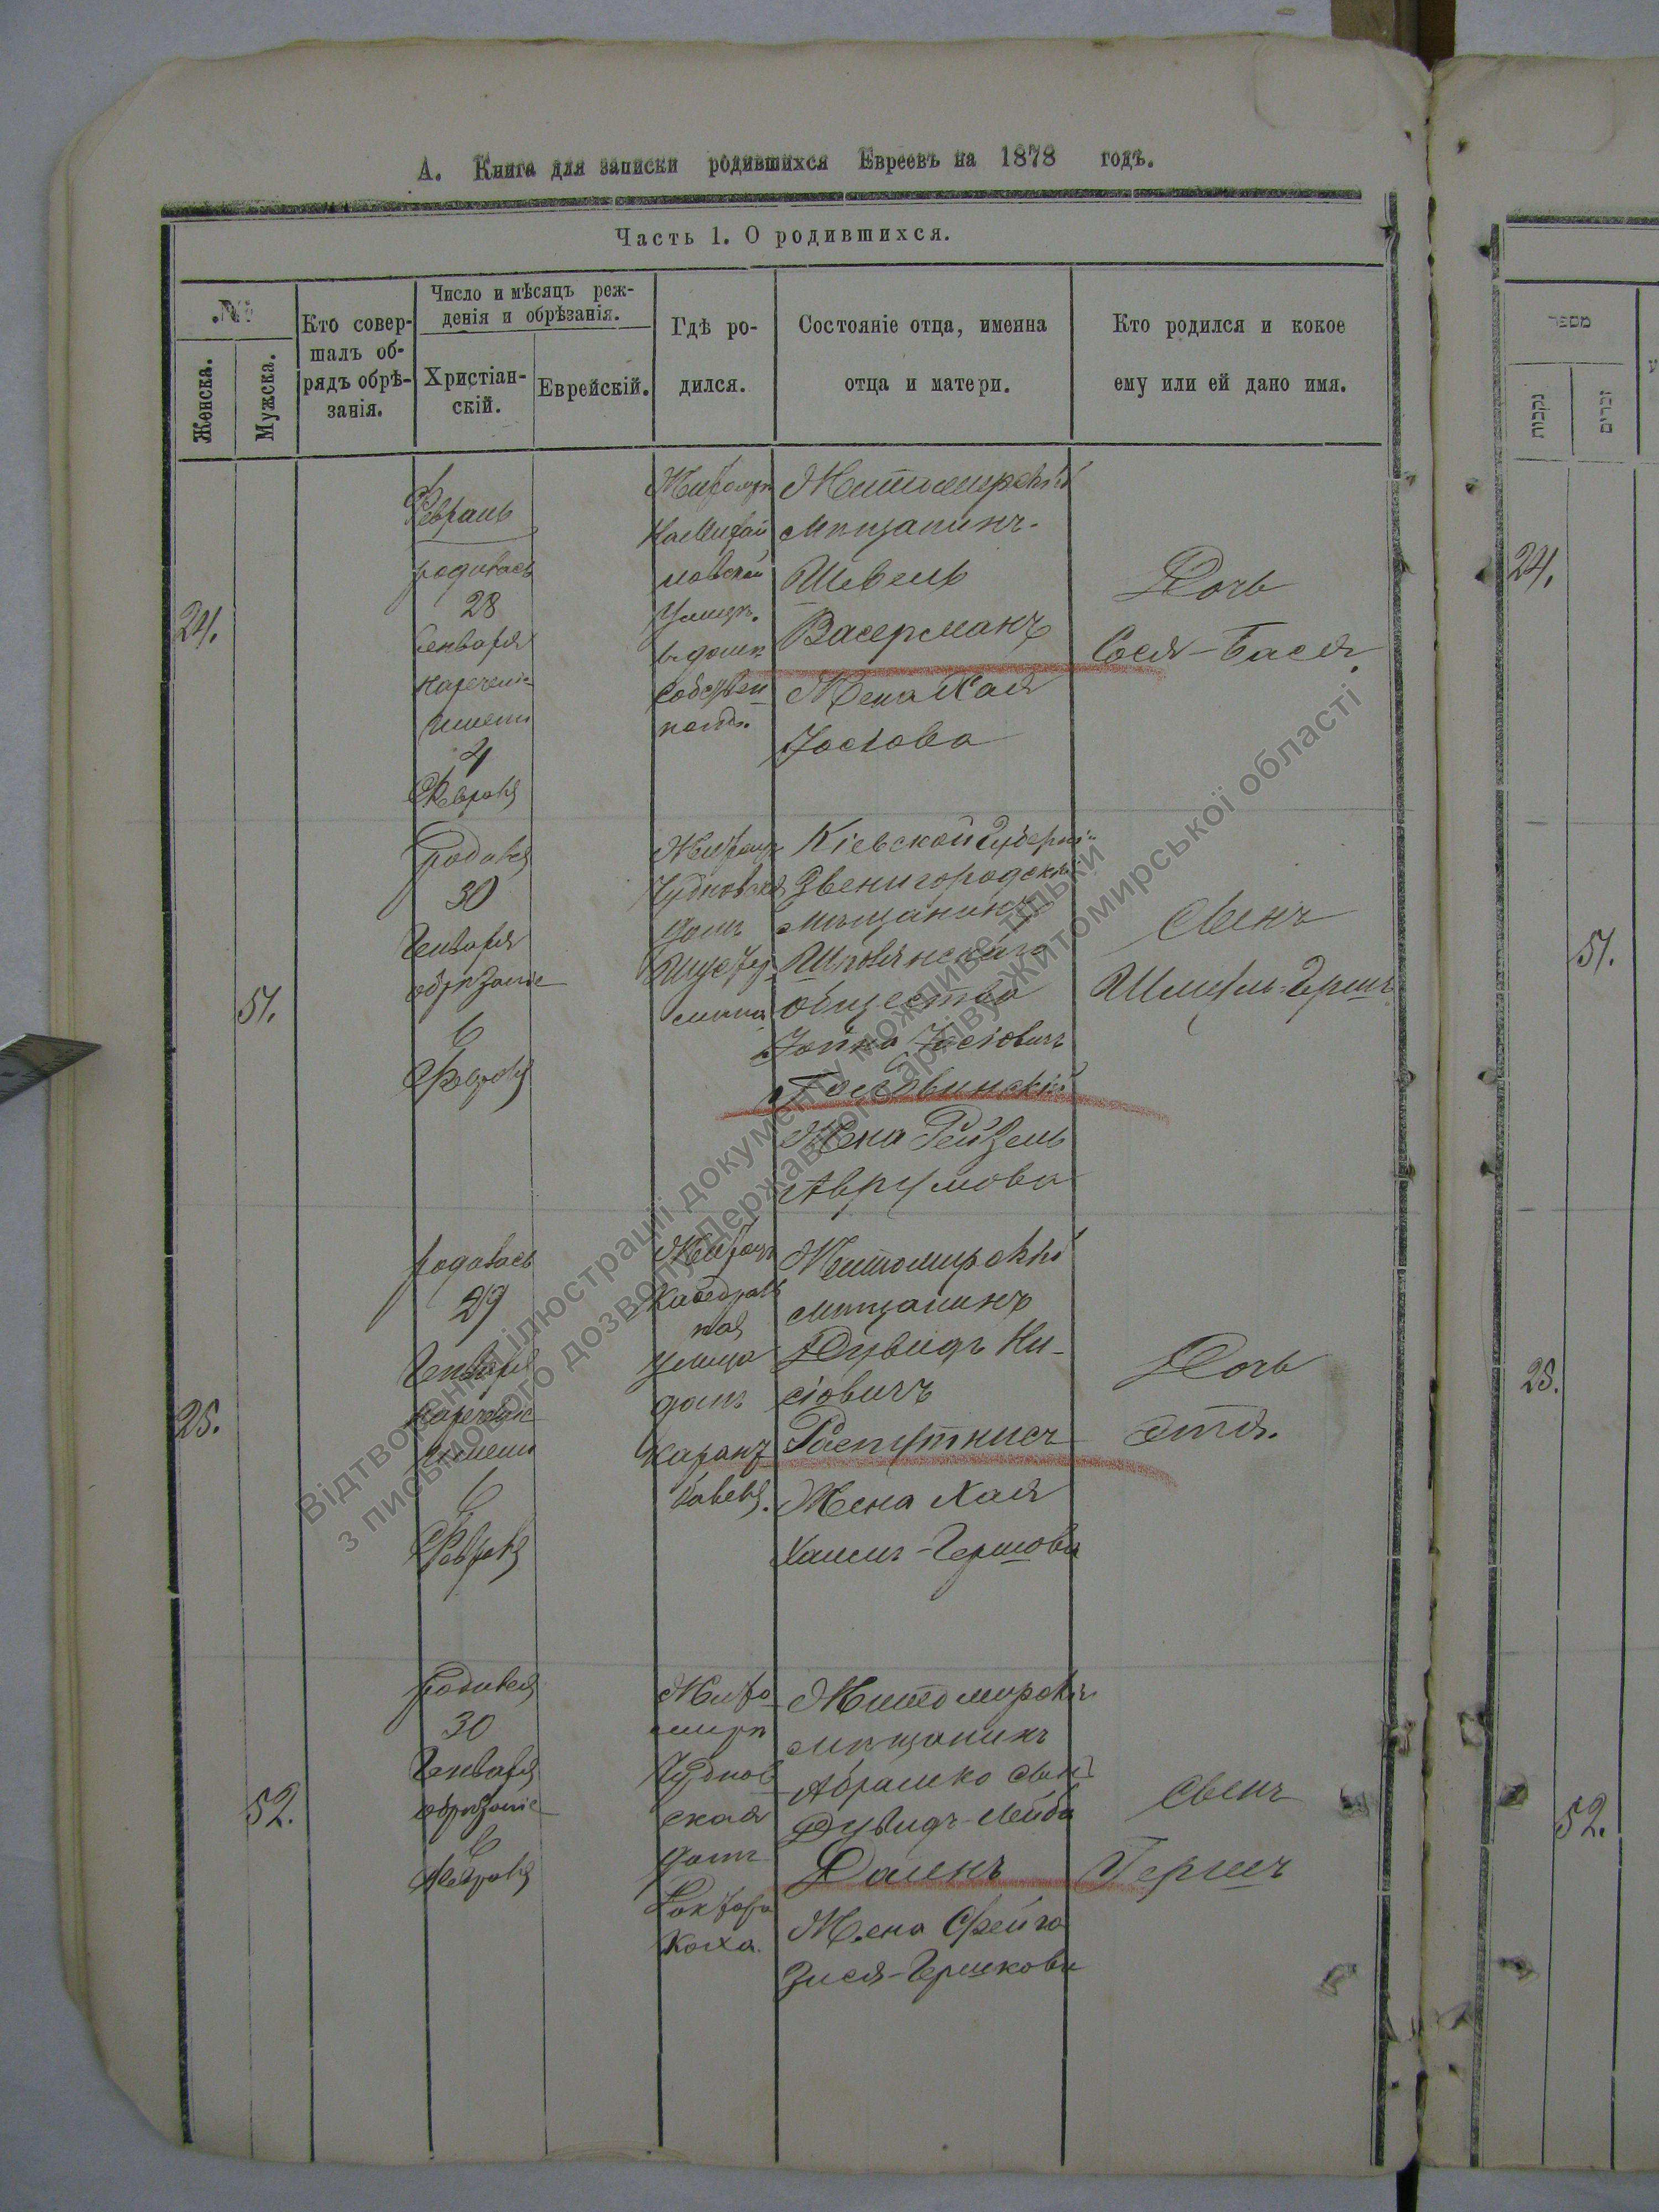 А. Книга для записки родившихся Евреевъ на 1878 годъ.
Часть 1. О родившихся.
№
Женска.
Мужска.
Кто совер-
шалъ об-
рядъ обрѣ-
занія.
Число и мѣсяцъ реж-
денія и обрѣзанія.
Христіан-
скій.
Еврейскій.
Гдѣ ро-
дился.
Состояніе отца, именна
отца и матери.
Кто родился и кокое
ему или ей дано имя.
24.
Февраль
родилась
28
Генваря
наречение
имени
4
Февраля
Житомиръ
на Михай
ловской
улицѣ
в домѣ
собствен
номъ
Житомирскій
мѣщанинъ
Шевель
Васерманъ
Жена Хая
Іосіова
Дочь
Сося-Бася
51.
родился
30
Генваря
обрѣзаніе
6
Февраля
Житомир
Чудновская
домъ
Кіевской Губерніи
Звенигородскій
мѣщанинъ
общества
Іойна Іосіовичъ
Жена Рейзель
Аврумова
Сынъ
Шмуль-Гершъ
25.
родилась
29
Генваря
наречение
имени
6
Февраля
Житомир
Кафедраль
ная
улица
домъ
Житомирскій
мѣщанинъ
Дувидъ Ни-
сіовичъ
Распутнисъ
Жена Хая
Хаимъ-Гершова
Дочь
Этя.
52.
родился
30
Генваря
обрѣзаніе
6
Февраля
Жито
миръ
Чуднов
ская
домъ
Доктора
Коха.
Житомирскій
мѣщанинъ
Абрамко сынъ
Дувидъ-Лейба
Жена Фейга
Зися-Гершкова
Сынъ
Гершъ
מספר
נקבות
זכרים
24.
51.
25.
52.
Відтворення ілюстрації документу можливе тільки
з письмового дозволу Державного архіву Житомирської області